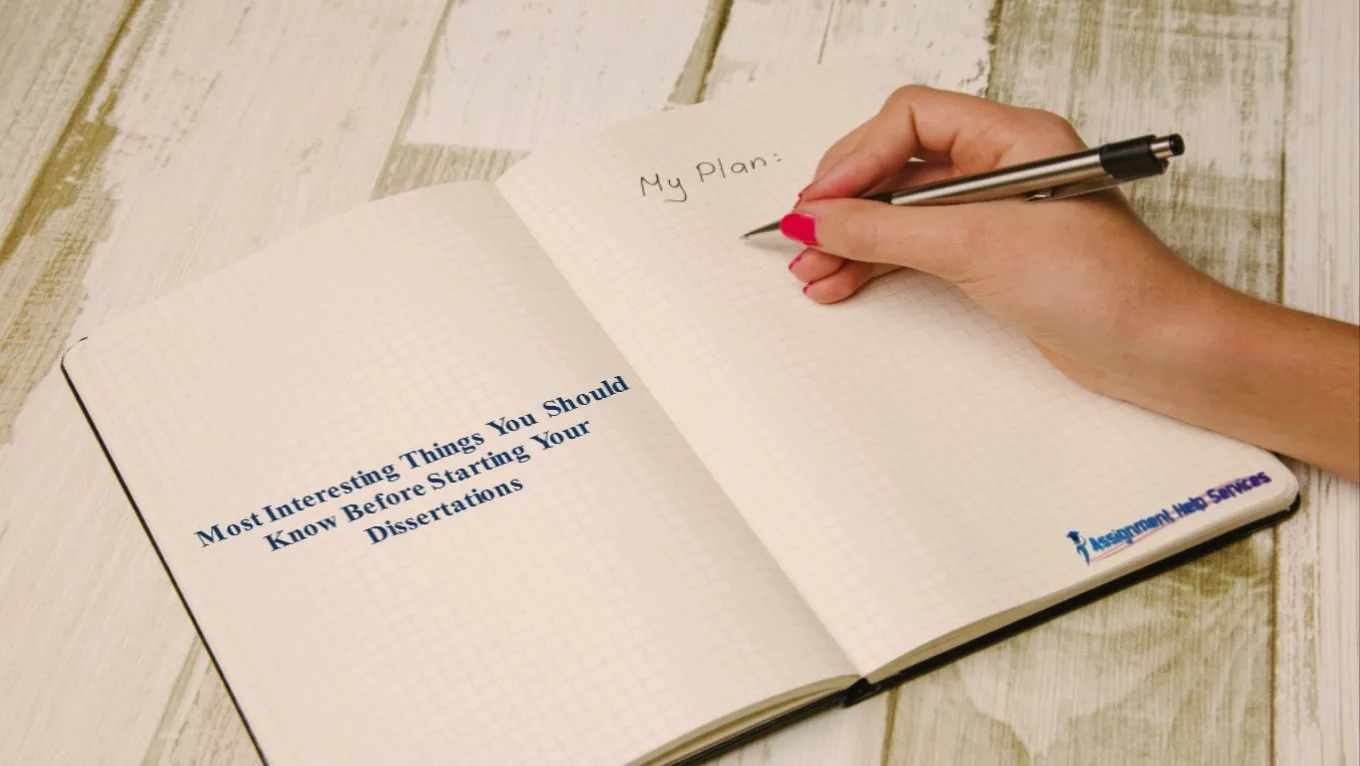 Most Interesting Things You Should
Know Before Starting Your
Dissertations
My Plan:
Assignment Help Services